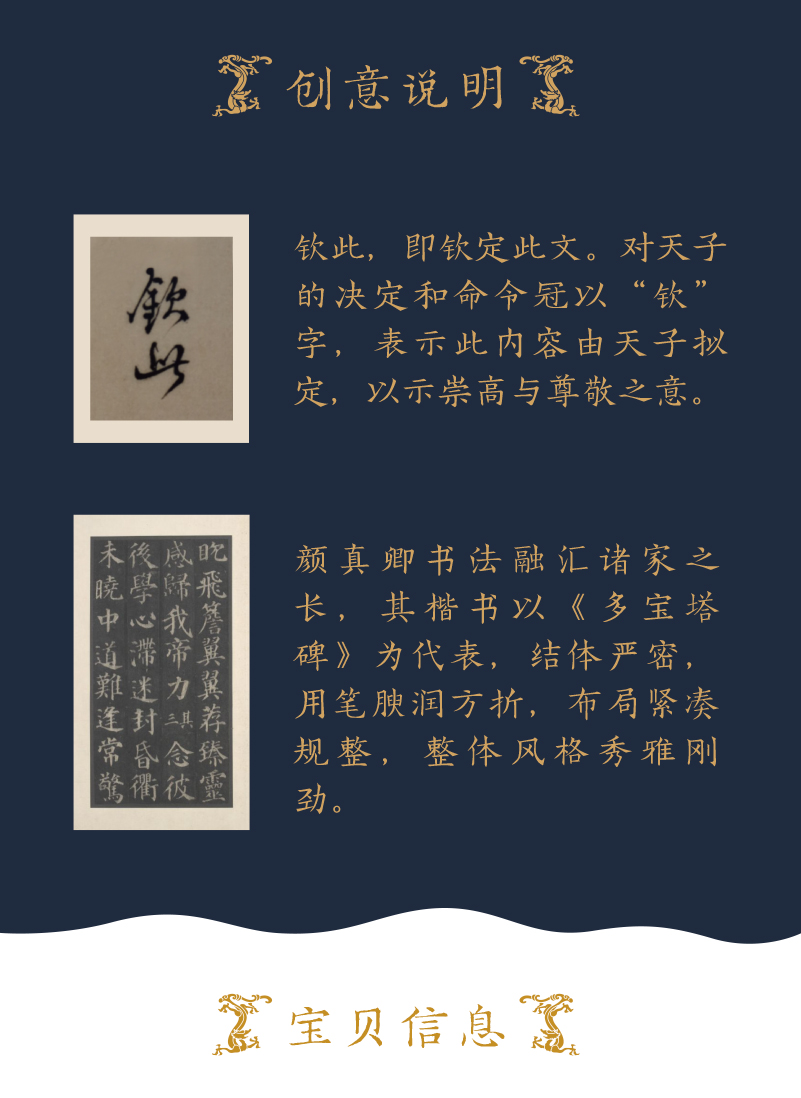 创意说明
欽此
钦此，即钦定此文。对天子
的决定和命令冠以“钦”
字，表示此内容由天子拟
定，以示崇高与尊敬之意。
盼飛簷翼翼荐臻靈
感歸我帝力三其念彼
後學心滯迷封昏衢
未曉中道難逢常驚
颜真卿书法融汇诸家之
长，其楷书以《多宝塔
碑》为代表，结体严密，
用笔腴润方折，布局紧凑
规整，整体风格秀雅刚
劲。
宝贝信息